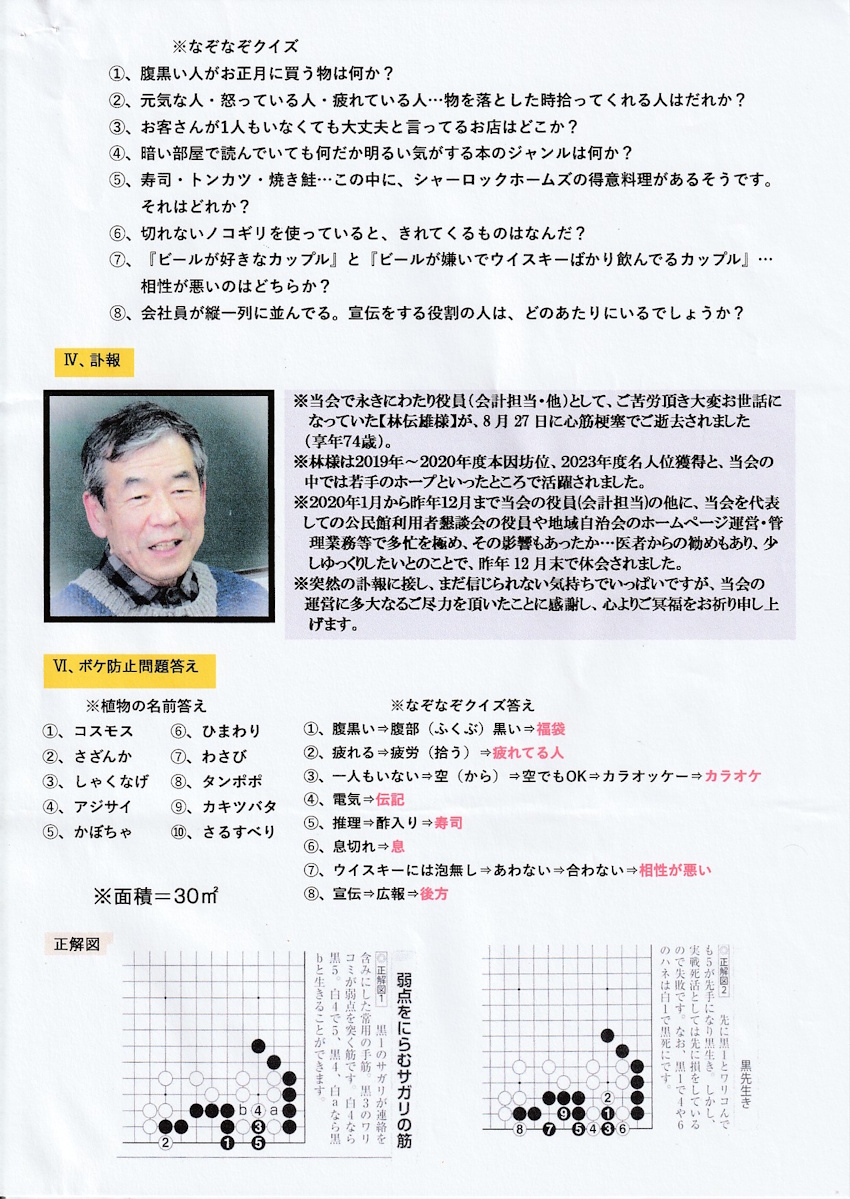 ※なぞなぞクイズ
①、腹黒い人がお正月に買う物は何か？
②、元気な人・怒っている人・疲れている人…物を落とした時拾ってくれる人はだれか？
③、お客さんが1人もいなくても大丈夫と言ってるお店はどこか？
④、暗い部屋で読んでいても何だか明るい気がする本のジャンルは何か？
⑤、寿司・トンカツ・焼き鮭…この中に、シャーロックホームズの得意料理があるそうです。
それはどれか？
⑥、切れないノコギリを使っていると、きれてくるものはなんだ？
⑦、『ビールが好きなカップル』と『ビールが嫌いでウイスキーばかり飲んでるカップル』…
相性が悪いのはどちらか？
⑧、会社員が縦一列に並んでる。宣伝をする役割の人は、どのあたりにいるでしょうか？
Ⅳ、訃報
※当会で永きにわたり役員（会計担当・他）として、ご苦労頂き大変お世話に
なっていた【林伝雄様】が、8月27日に心筋梗塞でご逝去されました
（享年74歳）。
※林様は2019年～2020年度本因坊位、2023年度名人位獲得と、当会の
中では若手のホープといったところで活躍されました。
※2020年1月から昨年12月まで当会の役員(会計担当)の他に、当会を代表
しての公民館利用者懇談会の役員や地域自治会のホームページ運営・管
理業務等で多忙を極め、その影響もあったか…医者からの勧めもあり、少
しゆっくりしたいとのことで、昨年12月末で休会されました。
※突然の訃報に接し、まだ信じられない気持ちでいっぱいですが、当会の
運営に多大なるご尽力を頂いたことに感謝し、心よりご冥福をお祈り申し上
げます。
Ⅵ、ボケ防止問題答え
※植物の名前答え
①、コスモス ⑥、ひまわり
②、さざんか ⑦、わさび
③、しゃくなげ ⑧、タンポポ
④、アジサイ ⑨、カキツバタ
⑤、かぼちゃ ⑩、さるすべり
※面積＝30㎡
※なぞなぞクイズ答え
①、腹黒い⇒腹部（ふくぶ）黒い⇒福袋
②、疲れる⇒疲労（拾う）⇒疲れてる人
③、一人もいない⇒空（から）⇒空でもOK⇒カラオッケー⇒カラオケ
④、電気⇒伝記
⑤、推理⇒酢入り⇒寿司
⑥、息切れ⇒息
⑦、ウイスキーには泡無し⇒あわない⇒合わない⇒相性が悪い
⑧、宣伝⇒広報⇒後方
正解図
弱点をにらむサガリの筋
◎正解図1 黒1のサガリが連絡を
含みにした常用の手筋。黒3のワリ
コミが弱点を突く筋です。白4なら
黒5。白4で5、黒4、白aなら黒
bと生きることができます。
b 4 a
3
2 1 5
黒先生き
◎正解図2 先に黒1とワリコんで
も5が先手になり黒生き。しかし、
実戦死活としては先に損をしている
ので失敗です。なお、黒1で4や6
のハネは白1で黒死にです。
2
9 1
8 7 5 4 3 6